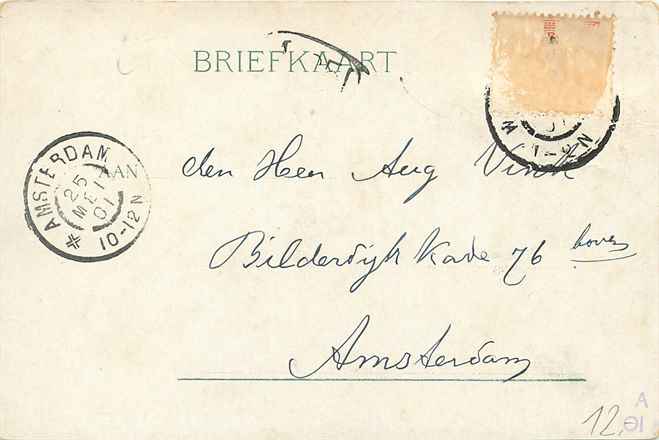 BRIEFKAART
AAN
AMSTERDAM
25
MEI
01
10-12N
den Heer Aug Vinck
Bilderdijk Kade 76 boven
Amsterdam
12,
A
ΘI